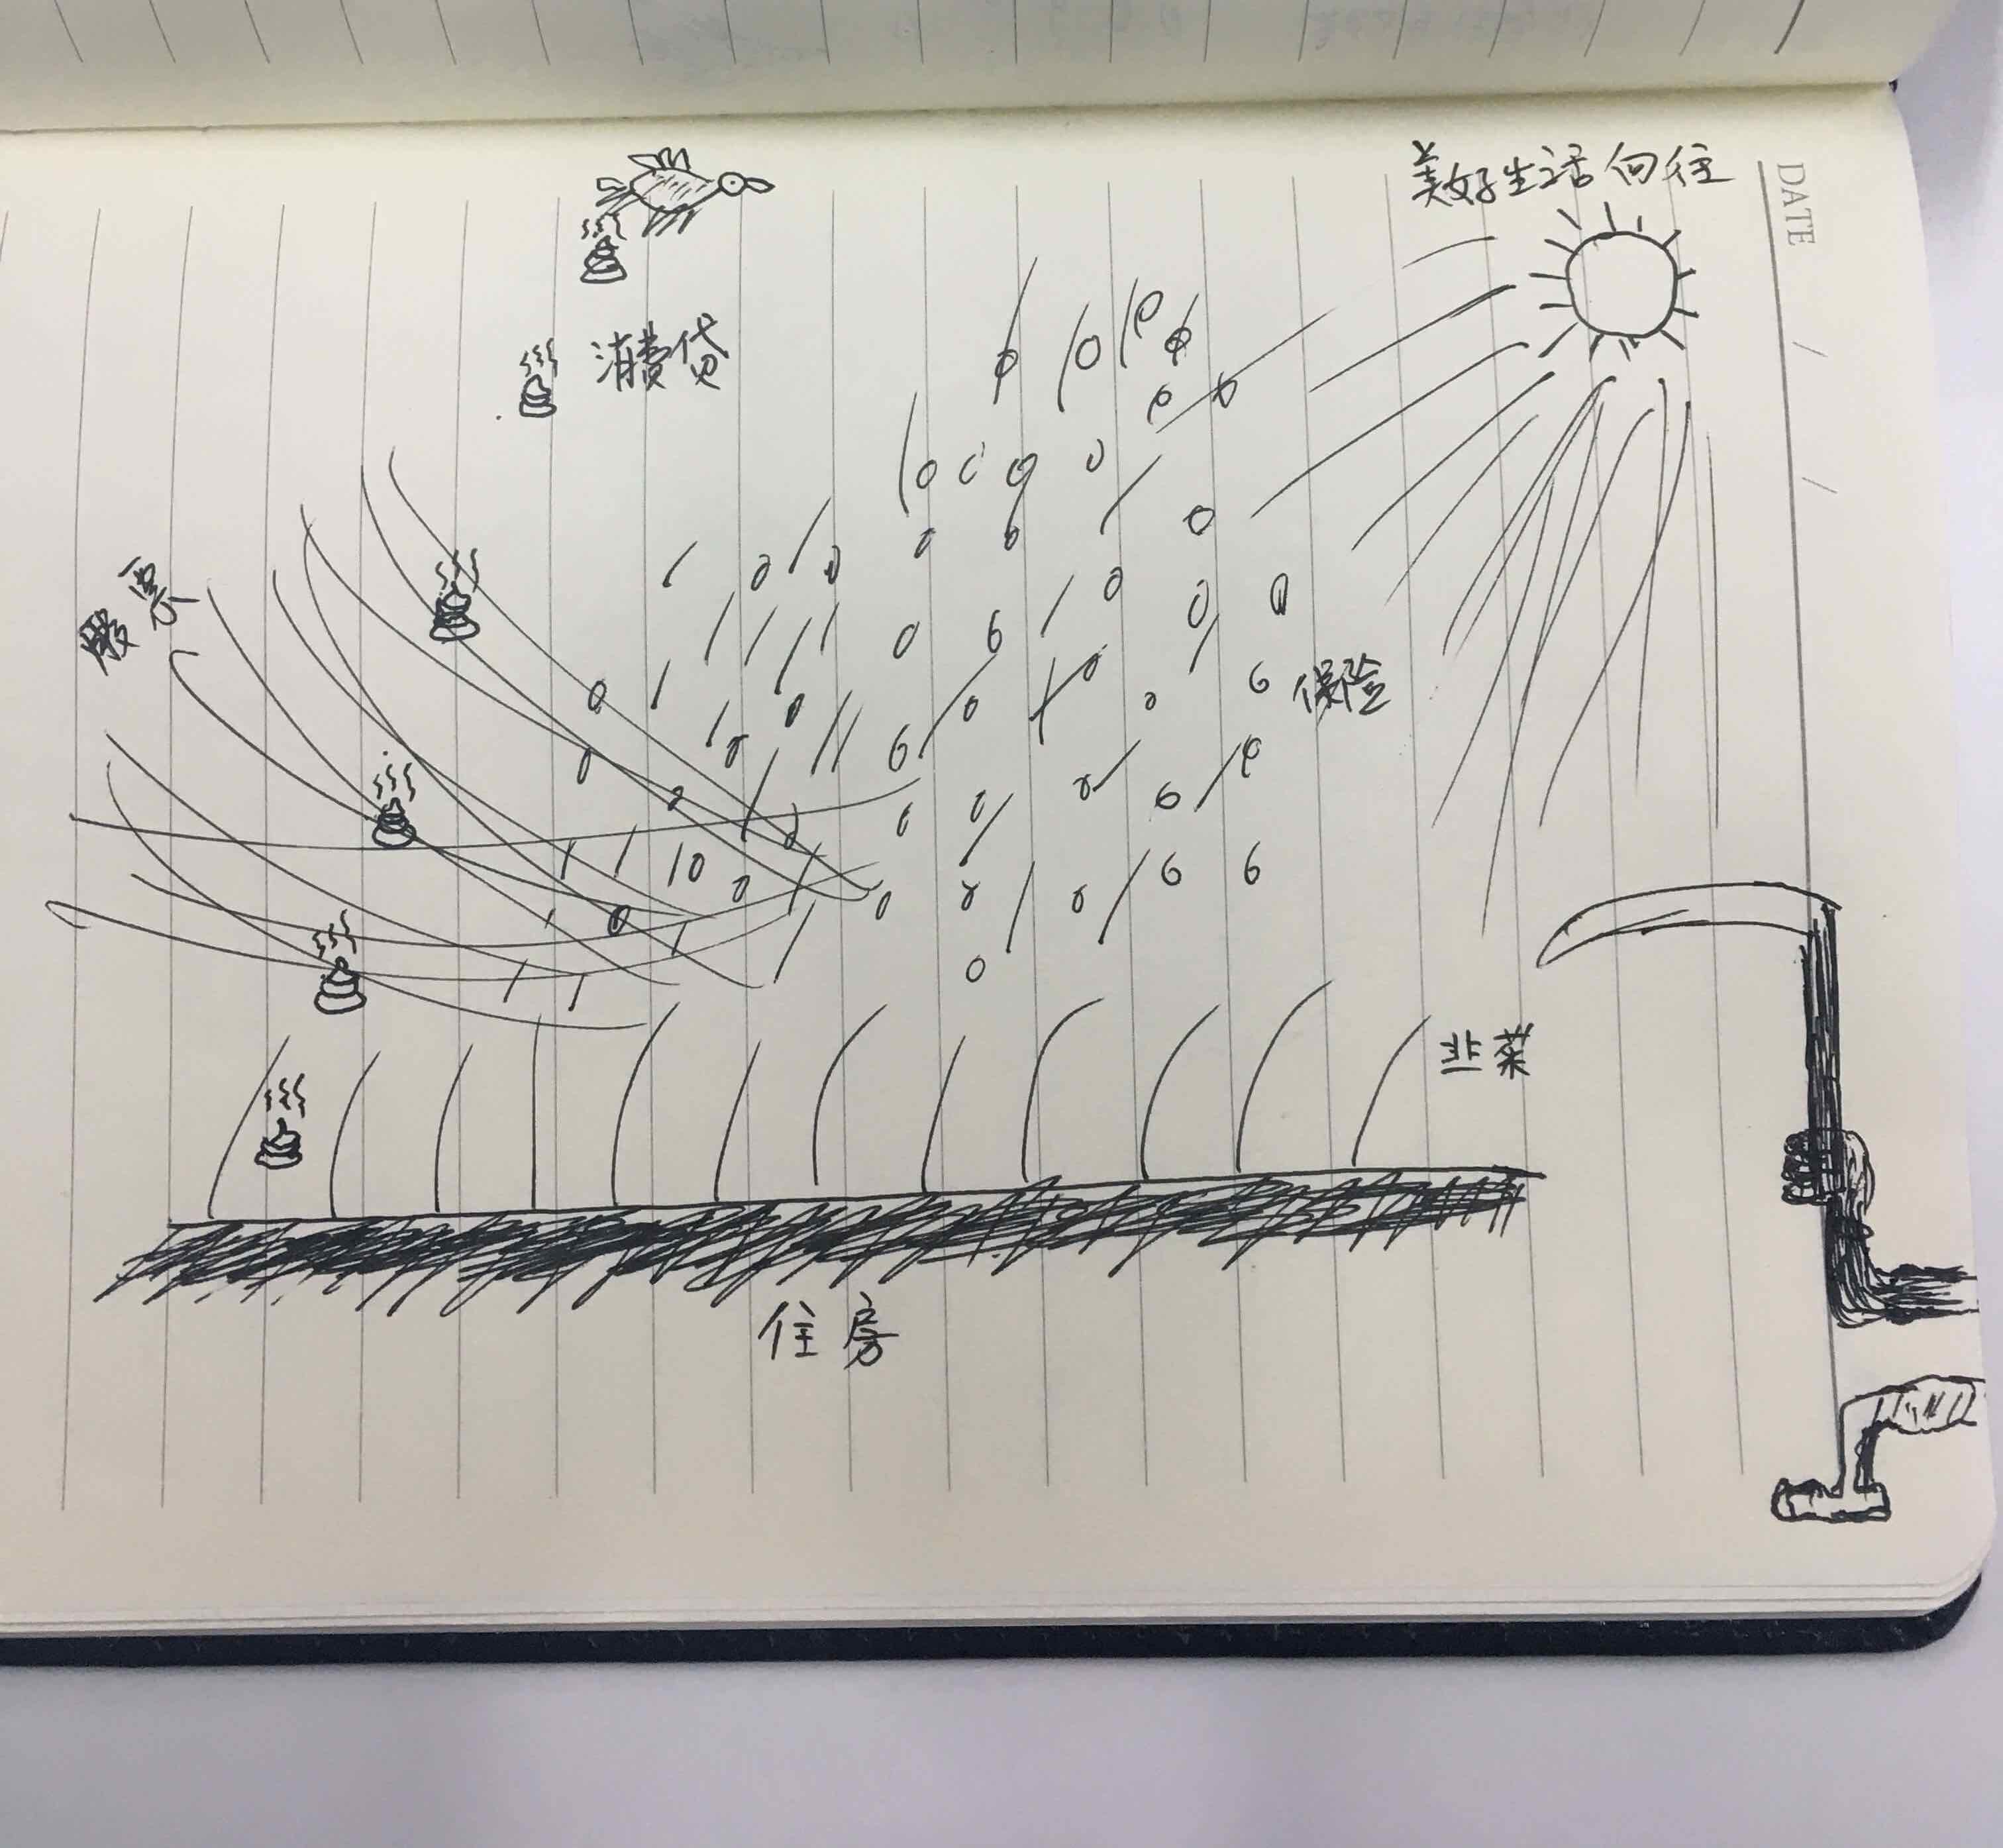 美好生活向往
DATE
消费贷
股票
保险
韭菜
住房